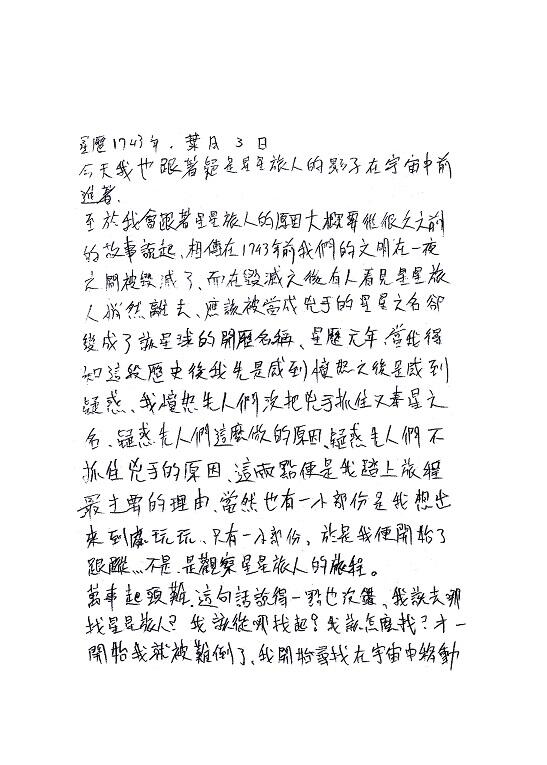 星歷1743年.葉月3日
今天我也跟著疑是星星旅人的影子在宇宙中前
進著.
至於我會跟著星星旅人的原因大概要從很久之前
的故事說起、相傳在1743年前我們的文明在一夜
之間被毀滅了、而在毀滅之後有人看見星星旅
人悄然離去、應該被當成兇手的星星之名卻
變成了該星球的開歷名稱、星歷元年.當我得
知這段歷史後我先是感到憤怒之後是感到
疑惑、我憤怒先人們沒把兇手抓住又奉星之
名、疑惑先人們這麼做的原因、疑惑先人們不
抓住兇手的原因、這兩點便是我踏上旅程
最主要的理由、當然也有一小部份是我想出
來到處玩玩、只有一小部份, 於是我便開始了
跟蹤...不是、是觀察星星旅人的旅程。
萬事起頭難、這句話說得一點也沒錯、我該去哪
找星星旅人？我該從哪找起？我該怎麼找？才一
開始我就被難倒了、我開始尋找在宇宙中移動